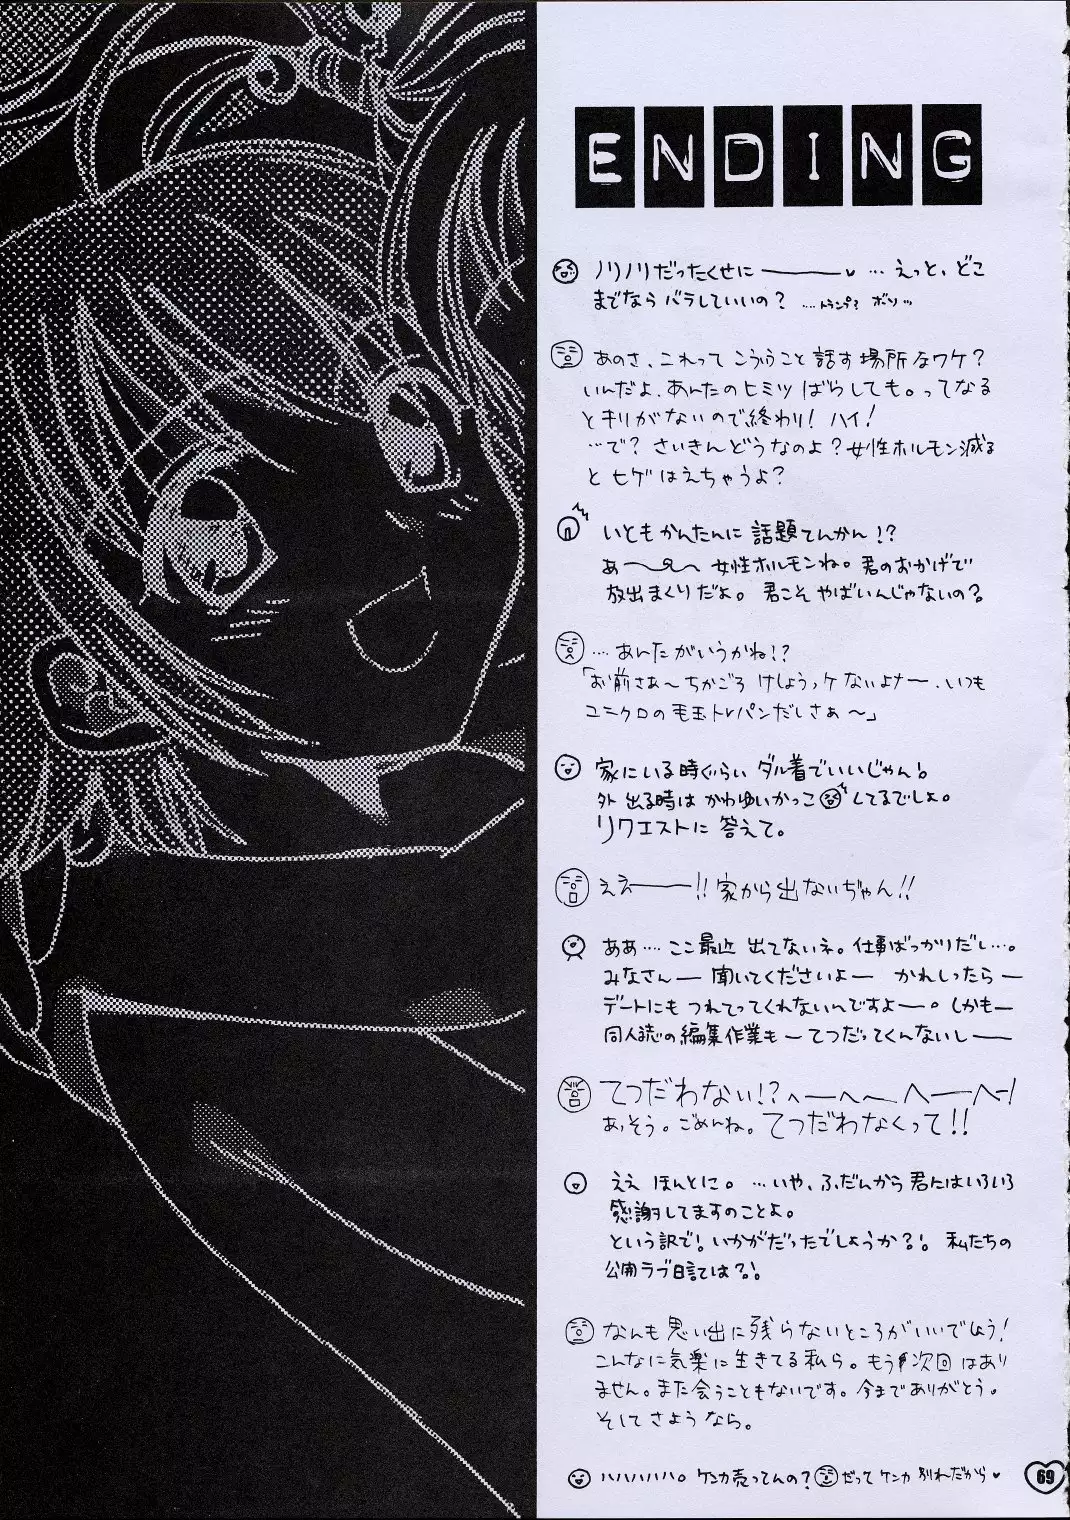 ENDING
ノリノリだったくせに――――♥…えっと、どこ
までならバラしていいの? ‥‥トランプ? ボソッ
あのさ、これってこういうこと話す場所なワケ?
いんだよ、あんたのヒミツばらしても。ってなる
とキリがないので終わり! ハイ!
…で? さいきんどうなのよ? 女性ホルモン減る
とヒゲはえちゃうよ?
いともかんたんに話題てんかん!?
あ〜〜 女性ホルモンね。君のおかげで
放出まくりだよ。君こそやばいんじゃないの?
…あんたがいうかね!?
「お前さぁ〜ちかごろけしょうッケないよナー、いつも
ユニクロの毛玉トレパンだしさぁ〜」
家にいる時ぐらいダル着でいいじゃん!
外出る時はかわゆいかっこしてるでしょ。
リクエストに答えて。
ええ―――!!家から出ないぢゃん!!
ああ‥‥ここ最近出てないネ。仕事ばっかりだし…。
みなさんー聞いてくださいよー かれしったらー
デートにもつれてってくれないんですよー。しかもー
同人誌の編集作業もーてつだってくんないしー
てつだわない!?へーへ〜へーへー!
あ、そう。ごめんね。てつだわなくって!!
ええほんとに。…いや、ふだんから君にはいろいろ
感謝してますのことよ。
という訳で!いかがだったでしょうか?!私たちの
公開ラブ日記は?!
なんも思い出に残らないところがいいでしょう!
こんなに気楽に生きてる私ら。もう次回はあり
ません。また会うこともないです。今までありがとう。
そしてさようなら。
ハハハハハハ。ケンカ売ってんの?だってケンカ別れだから♥
69